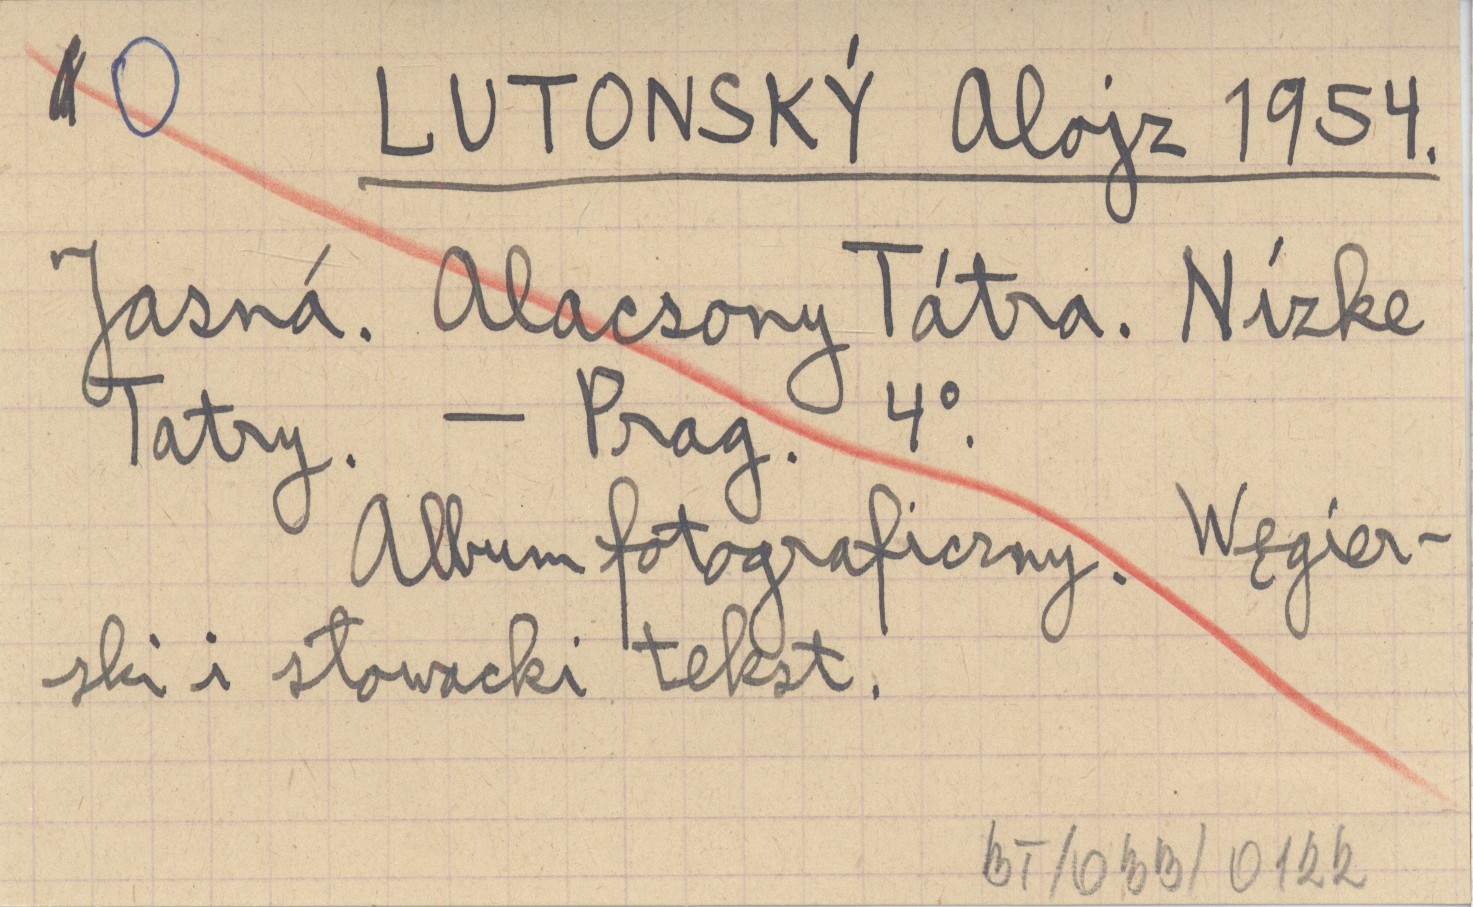 LUTONSKÝ Alojz 1954.
Jasná. Alacsony Tátra. Nízke
Tatry. — Prag. 4°.
Album fotograficzny. Węgier-
ski i słowacki tekst.